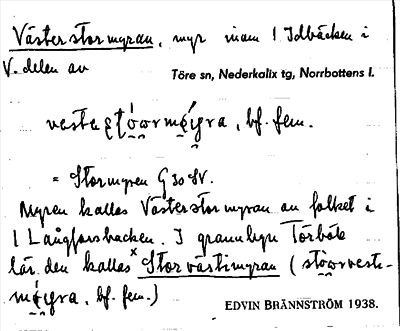 Västerstormyran, myr inom l Idbäcken i
V. delen av
Töre sn, Nederkalix tg, Norrbottens l.
bf. fem.
= Stormyren G 30 SV.
Myren kallas Västerstormyran av folket i
l Långforsbacken. I grannbyn Törböle
lär den kallas Storvästimyran (
bf. fem.)
EDVIN BRÄNNSTRÖM 1938.